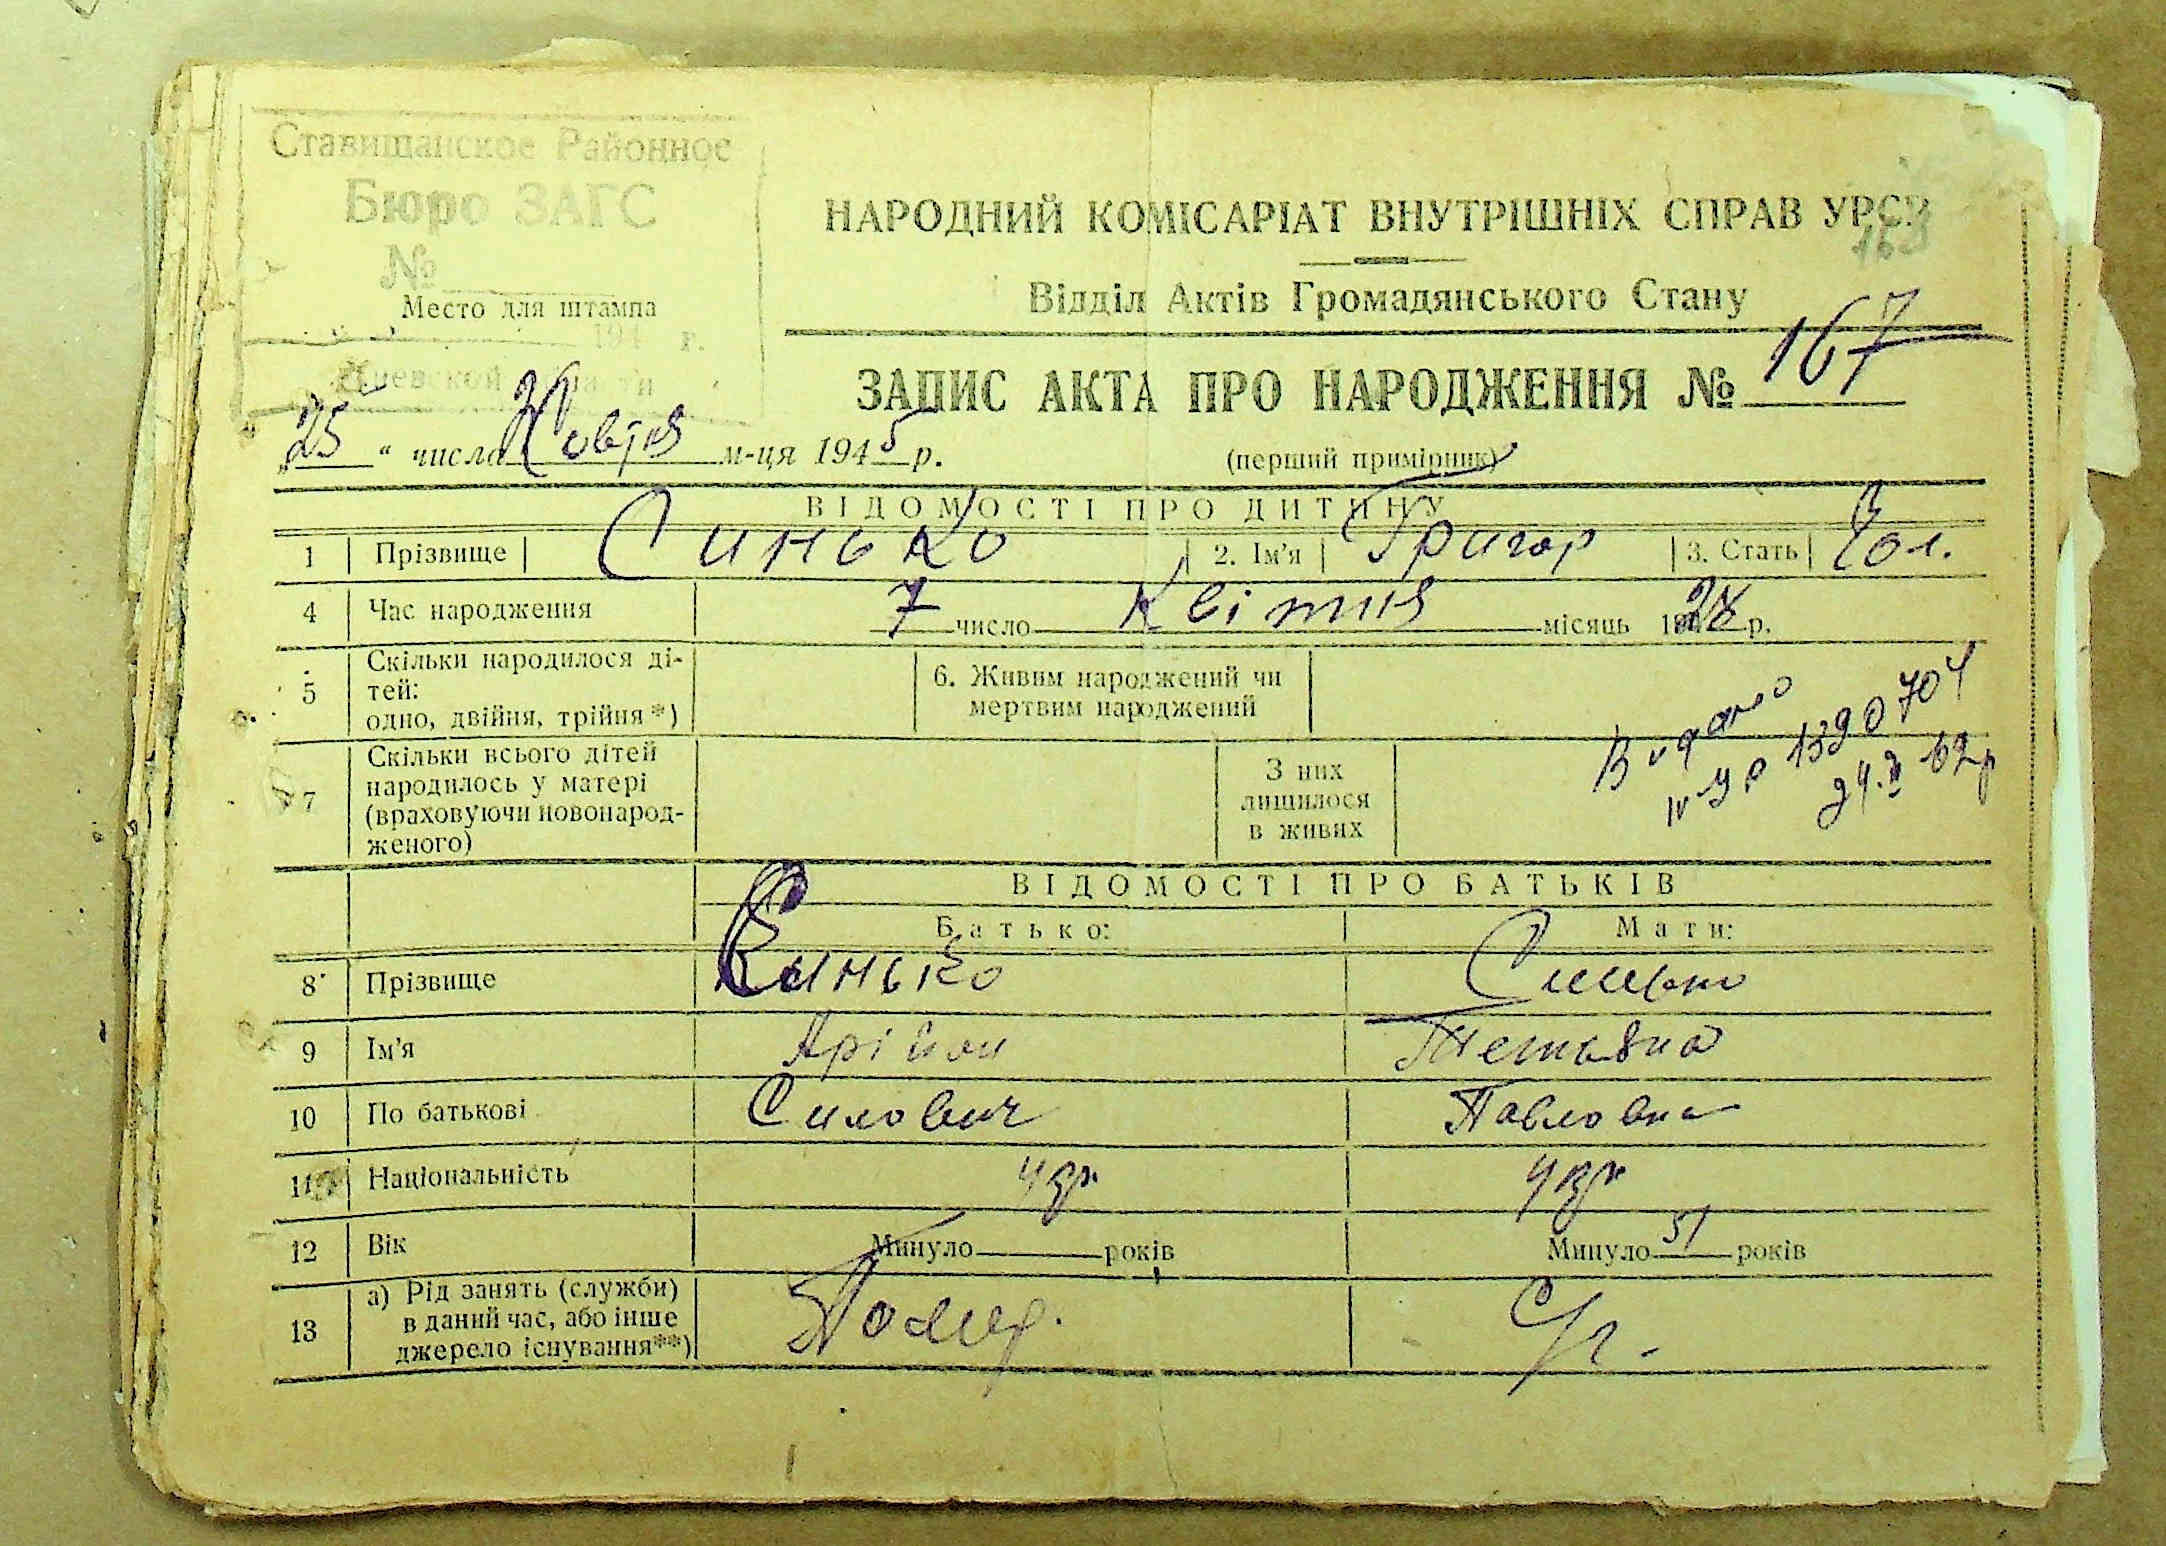 Ставищанское Районное
Бюро ЗАГС
№
Место для штампа
194 г.
Киевской области
НАРОДНИЙ КОМІСАРІАТ ВНУТРІШНІХ СПРАВ УРСР
Відділ Актів Громадянського Стану
ЗАПИС АКТА ПРО НАРОДЖЕННЯ № 167
„25“ числа Жовтня м-ця 1945 р.
(перший примірник)
ВІДОМОСТІ ПРО ДИТИНУ
1 Прізвище Синько 2. Ім'я Григор 3. Стать Чол.
4 Час народження 7 число Квітня місяць 1928 р.
5 Скільки народилося ді-
тей:
одно, двійня, трійня*)
6. Живим народжений чи
мертвим народжений
7 Скільки всього дітей
народилось у матері
(враховуючи новонарод-
женого)
З них
лишилося
в живих
Видано
1390704
62р
ВІДОМОСТІ ПРО БАТЬКІВ
Батько: Мати:
8 Прізвище Синько Синько
9 Ім'я Тетьяна
10 По батькові Силович Павловна
11 Національність укр. укр
12 Вік Минуло років Минуло 31 років
13 а) Рід занять (служби)
в даний час, або інше
джерело існування**)